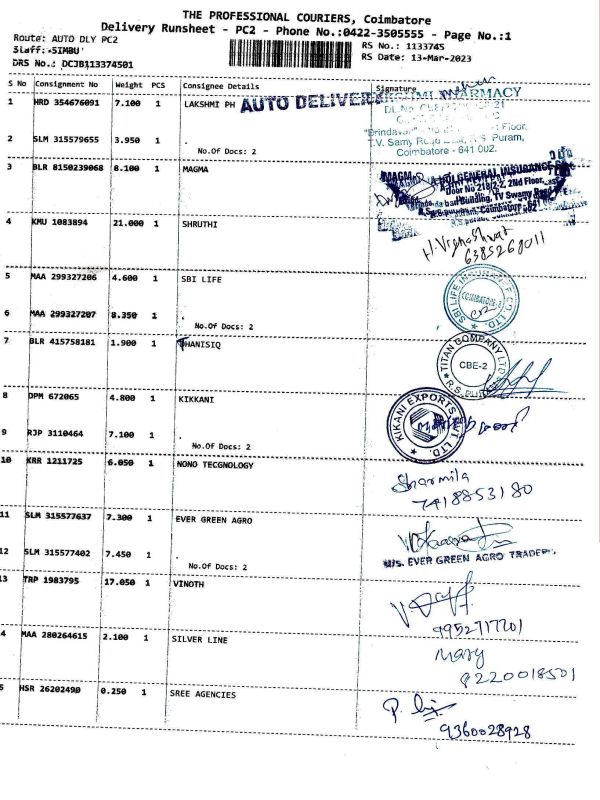 THE PROFESSIONAL COURIERS, Coimbatore
Delivery Runsheet - PC2 - Phone No.:0422-3505555 - Page No.:1
Route: AUTO DLY PC2
RS No.: 1133745
Staff: SIMBU
RS Date: 13-Mar-2023
DRS No.: DCJB113374501
S No Consignment No Weight PCS Consignee Details Signature
1 HRD 354676091 7.100 1 LAKSHMI PH
AUTO DELIVER
PHARMACY
2 SLM 315579655 3.950 1 .
No.Of Docs: 2
Floor,
T.V. Samy R.S. Puram,
Coimbatore - 641 002.
3 BLR 8150239068 8.100 1 MAGMA
MAGM GENERAL INSURANCE
Door No 218/2-2, 2nd Floor,
Building, TV Samy Road
Coimbatore - 641
4 KMU 1083894 21.000 1 SHRUTHI
6385268011
5 MAA 299327206 4.600 1 SBI LIFE
SBI LIFE INSURANCE CO. LTD.
COIMBATORE-2
6 MAA 299327207 8.350 1 .
No.Of Docs: 2
7 BLR 415758181 1.900 1 THANISIQ
TITAN COMPANY LTD
CBE-2
R.S. PURAM
8 DPM 672065 4.800 1 KIKKANI
KIKANI EXPORTS PVT LTD
9 RJP 3110464 7.100 1 .
No.Of Docs: 2
10 KRR 1211725 6.050 1 NONO TECGNOLOGY
Sharmila
7418853180
11 SLM 315577637 7.300 1 EVER GREEN AGRO
M/s. EVER GREEN AGRO TRADER
12 SLM 315577402 7.450 1 .
No.Of Docs: 2
13 TRP 1983795 17.050 1 VINOTH
9952717201
4 MAA 280264615 2.100 1 SILVER LINE
Mary
8220018501
5 HSR 26202490 0.250 1 SREE AGENCIES
9360028928